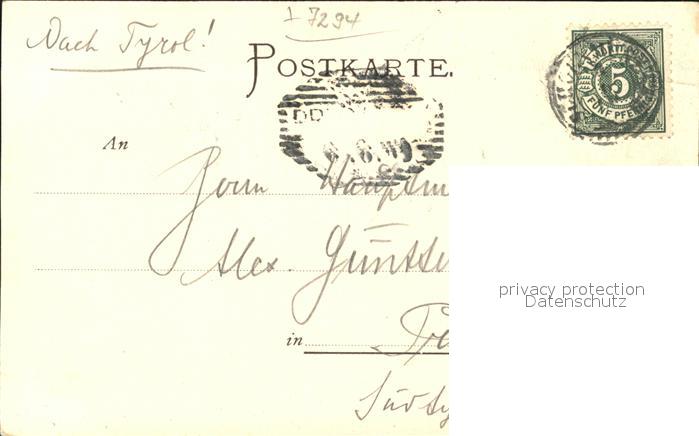 Nach Tyrol!
7294
POSTKARTE.
5
FÜNF PFENNIG
An
Herrn Hauptm
Alex. Günthe
in Tr
Südty
privacy protection
Datenschutz